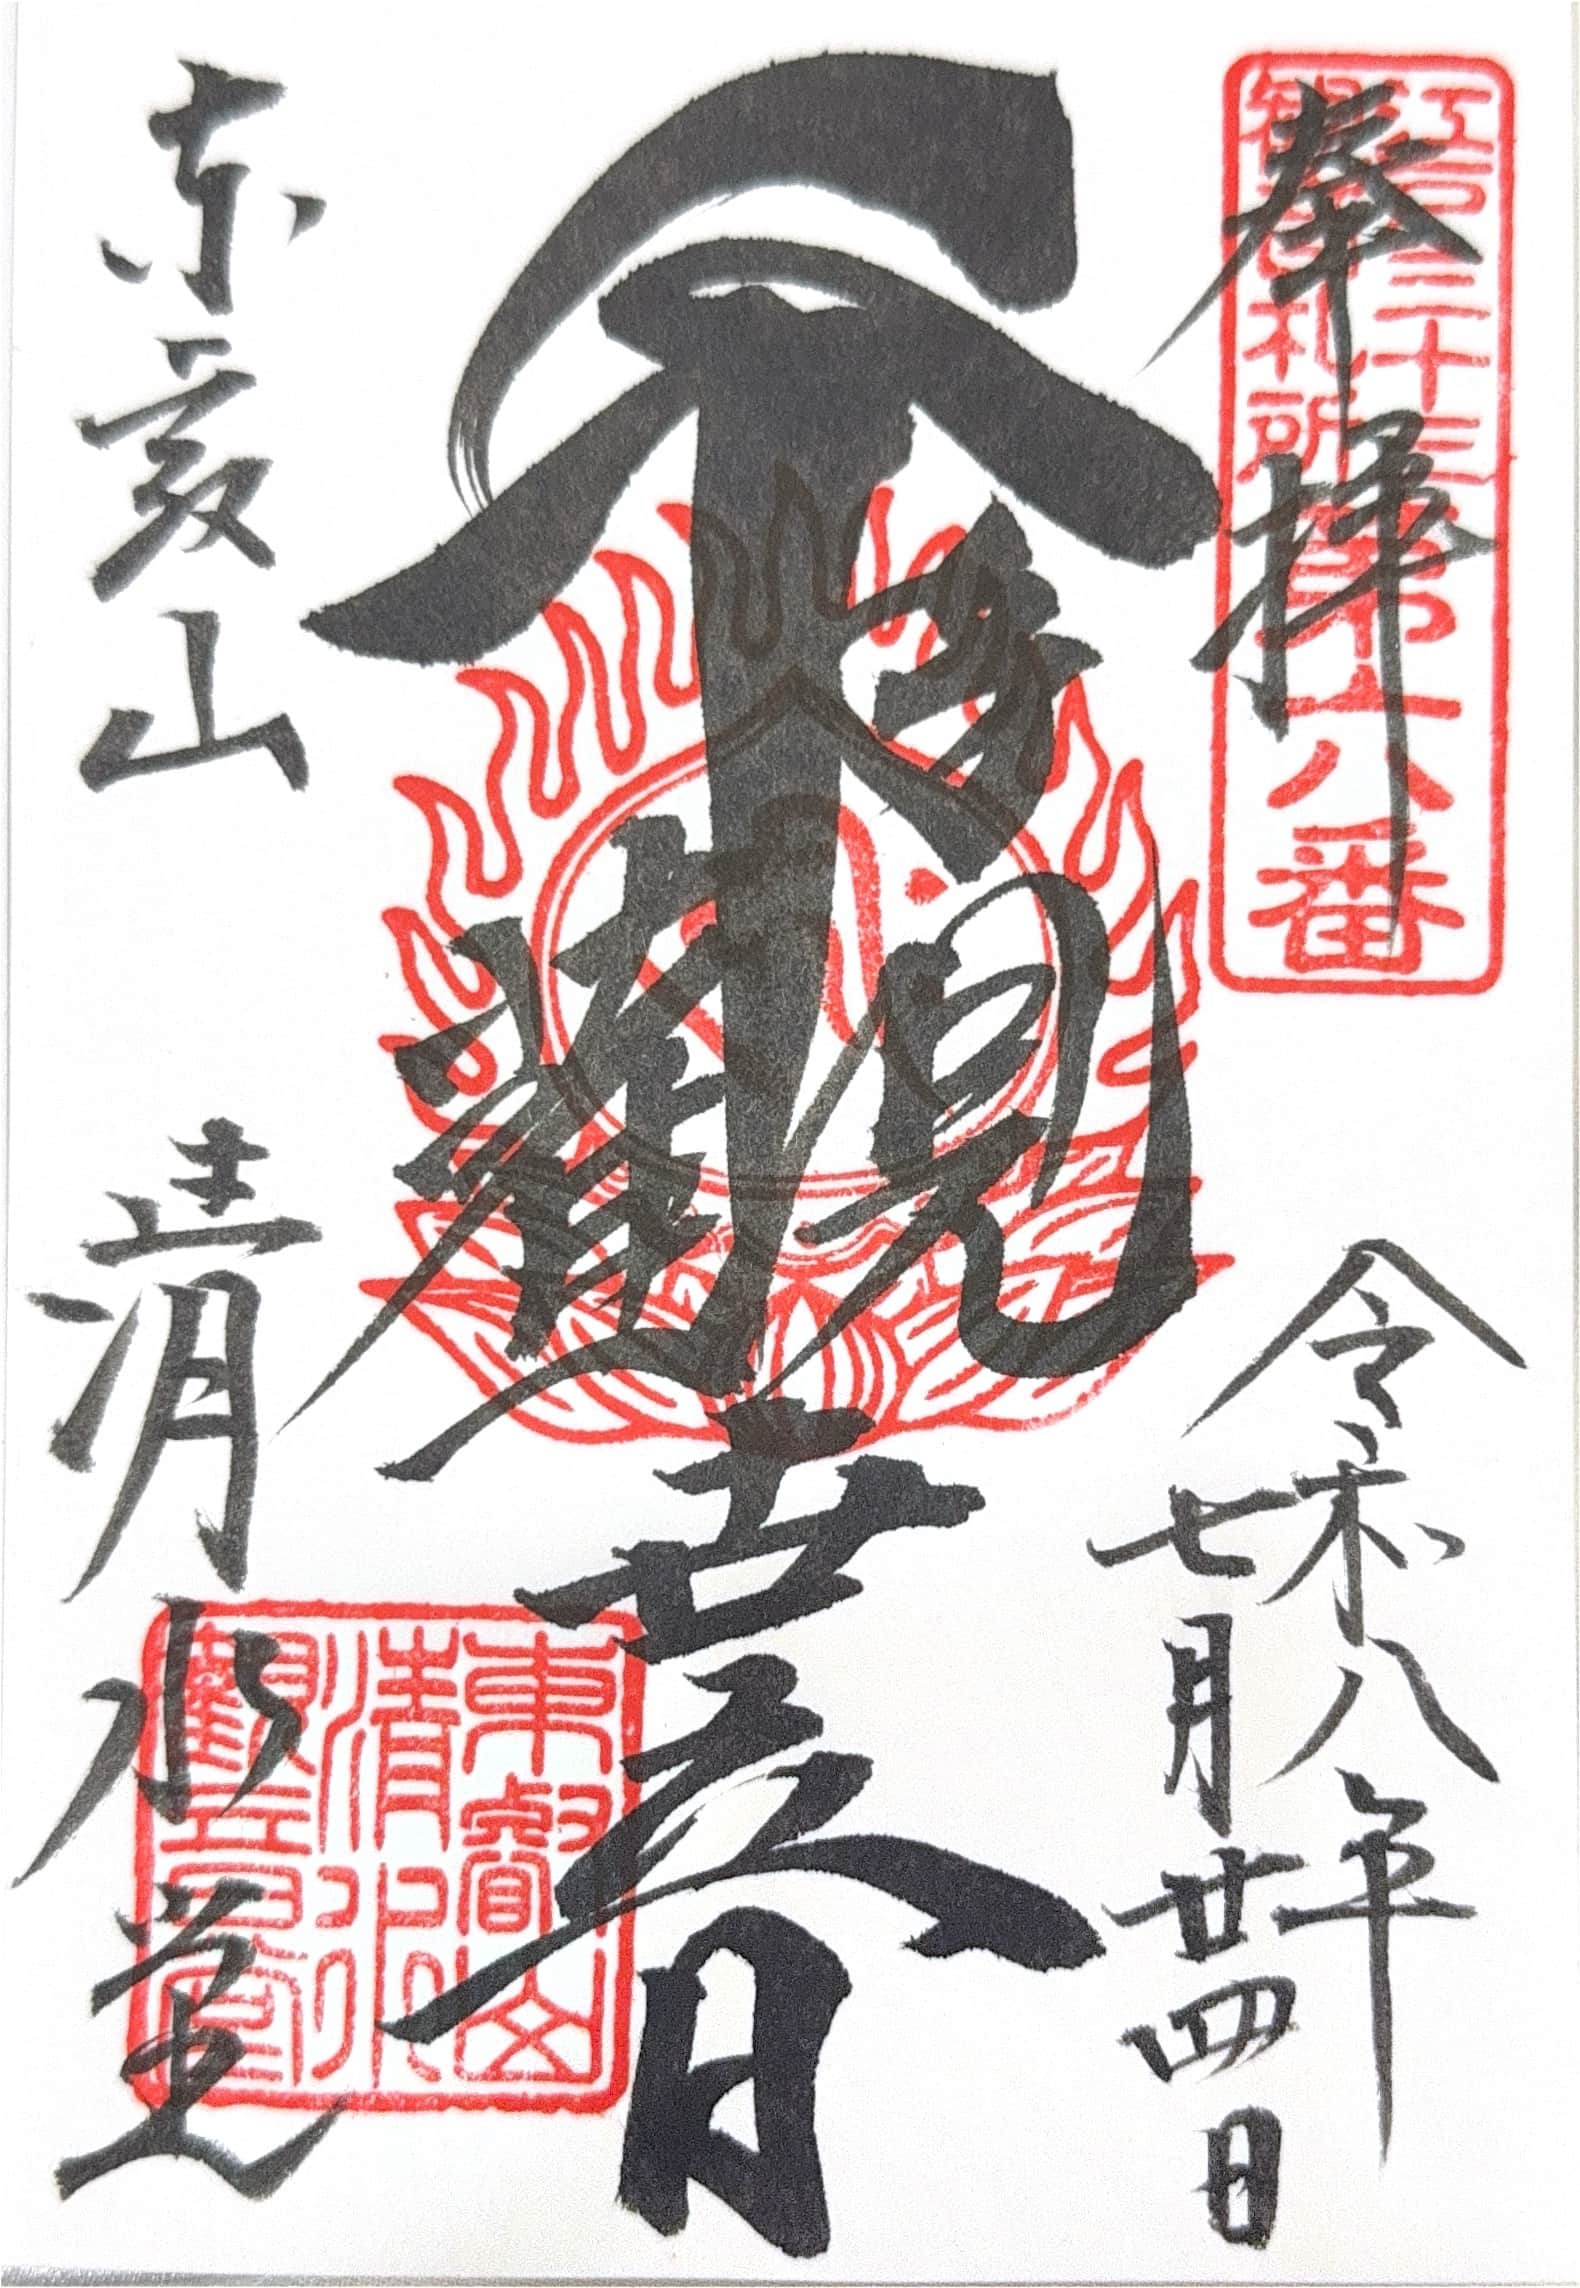 江戸三十三
観音札所
第六番
奉拝
令和八年
七月廿四日
千手觀世音
東叡山
清水
觀音堂
東叡山 清水堂